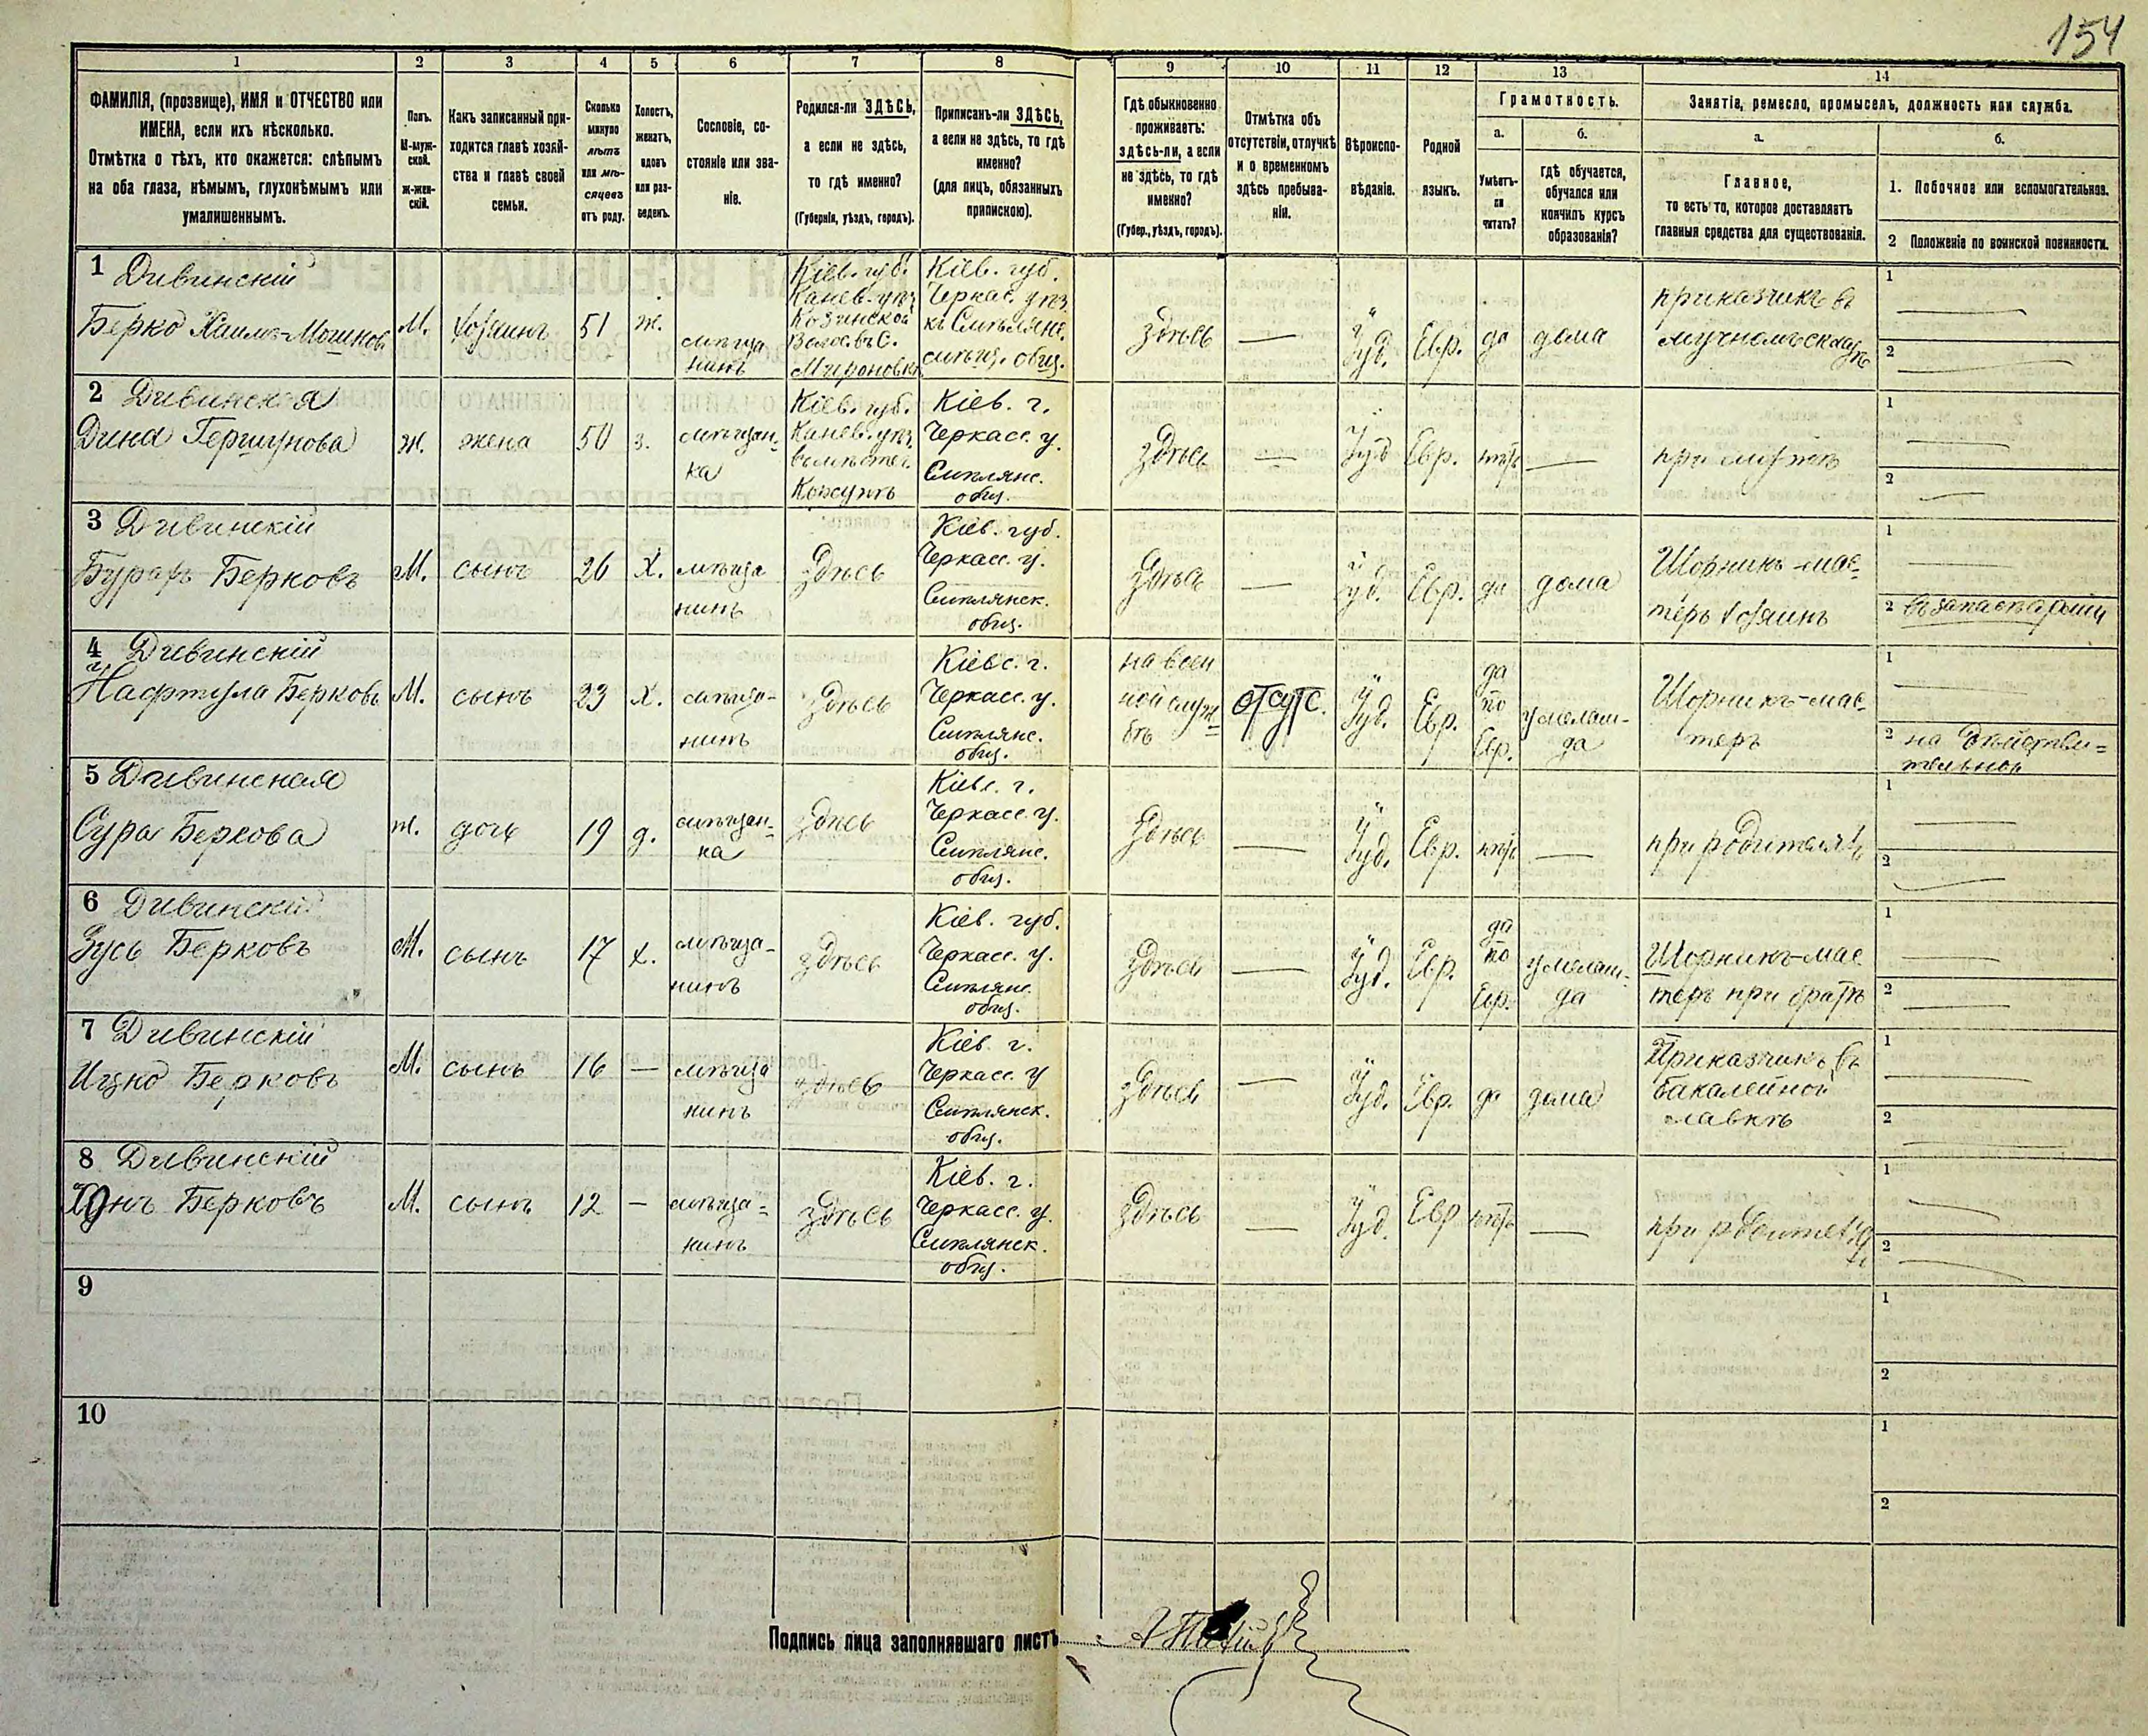 154
1 2 3 4 5 6 7 8 9 10 11 12 13 14
ФАМИЛІЯ, (прозвище), ИМЯ и ОТЧЕСТВО или
ИМЕНА, если ихъ нѣсколько.
Отмѣтка о тѣхъ, кто окажется: слѣпымъ
на оба глаза, нѣмымъ, глухонѣмымъ или
умалишеннымъ.
Полъ.
М-муж-
ской.
ж-жен-
скій.
Какъ записанный при-
ходится главѣ хозяй-
ства и главѣ своей
семьи.
Сколько
минуло
лѣтъ
или мѣ-
сяцевъ
отъ роду.
Холостъ,
женатъ,
вдовъ
или раз-
веденъ.
Сословіе, со-
стояніе или зва-
ніе.
Родился-ли ЗДѢСЬ,
а если не здѣсь,
то гдѣ именно?
(Губернія, уѣздъ, городъ).
Приписанъ-ли ЗДѢСЬ,
а если не здѣсь, то гдѣ
именно?
(для лицъ, обязанныхъ
припискою).
Гдѣ обыкновенно
проживаетъ:
здѣсь-ли, а если
не здѣсь, то гдѣ
именно?
(Губер., уѣздъ, городъ).
Отмѣтка объ
отсутствіи, отлучкѣ
и о временномъ
здѣсь пребыва-
ніи.
Вѣроиспо-
вѣданіе.
Родной
языкъ.
Грамотность.
а.
Умѣетъ-
ли
читать?
б.
Гдѣ обучается,
обучался или
кончилъ курсъ
образованія?
Занятіе, ремесло, промыселъ, должность или служба.
а.
Главное,
то есть то, которое доставляетъ
главныя средства для существованія.
б.
1. Побочное или вспомогательное.
2 Положеніе по воинской повинности.
1 Дивинскій
Берко Хаимъ-Мошков
М.
хозяинъ
51
ж.
мѣща
нинъ
Кіев. губ.
Канев. уѣз.
Козинской
Волос. въ С.
Мироновкѣ
Кіев. губ.
Черкас. уѣз.
къ Смѣлянс.
мѣщ. общ.
здѣсь
—
Іуд.
Евр.
да
дома
приказчикъ въ
мучномъ складѣ
1
2
2 Дивинская
Дина Гершунова
ж.
жена
50
з.
мѣщан-
ка
Кіев. губ.
Канев. уѣз.
въ мѣстеч.
Корсунѣ
Кіев. г.
Черкасс. у.
Смѣлянс.
общ.
здѣсь
—
Іуд
Евр.
нѣтъ
—
при мужѣ
1
2
3 Дивинскій
Берковъ
М.
сынъ
26
Х.
мѣща
нинъ
Здѣсь
Кіев. губ.
Черкасс. у.
Смѣлянск.
общ.
здѣсь
—
Іуд.
Евр.
да
дома
Шорникъ-мас-
теръ хозяинъ
1
2 въ запасѣ арміи
4 Дивинскій
Нафтула Берковъ
М.
сынъ
23
Х.
мѣща-
нинъ
Здѣсь
Кіевс. г.
Черкасс. у.
Смѣлянс.
общ.
на воен
ной служ
бѣ
отсутс.
Іуд.
Евр.
да
по
Евр.
у мелам-
да
Шорникъ-мас-
теръ
1
2 на дѣйстви-
тельной
5 Дивинская
Сура Беркова
ж.
дочь
19
д.
мѣщан-
ка
Здѣсь
Кіевс. г.
Черкасс. у.
Смѣлянс.
общ.
Здѣсь
—
Іуд.
Евр.
нѣтъ
—
при родителяхъ
1
2
6 Дивинскій
Зусь Берковъ
М.
сынъ
17
х.
мѣща-
нинъ
здѣсь
Кіев. губ.
Черкасс. у.
Смѣлянс.
общ.
Здѣсь
—
Іуд.
Евр.
да
по
Евр.
у мелам-
да
Шорникъ-мас
теръ при братѣ
1
2
7 Дивинскій
Ицко Берковъ
М.
сынъ
16
—
мѣща
нинъ
здѣсь
Кіев. г.
Черкасс. у
Смѣлянск.
общ.
Здѣсь
—
Іуд.
Евр.
да
дома
Приказчикъ въ
бакалейной
лавкѣ
1
2
8 Дивинскій
Берковъ
М.
сынъ
12
—
мѣща-
нинъ
здѣсь
Кіев. г.
Черкасс. у.
Смѣлянск.
общ.
здѣсь
—
Іуд.
Евр
нѣтъ
—
при родителяхъ
1
2
9
1
2
10
1
2
Подпись лица заполнявшаго листъ